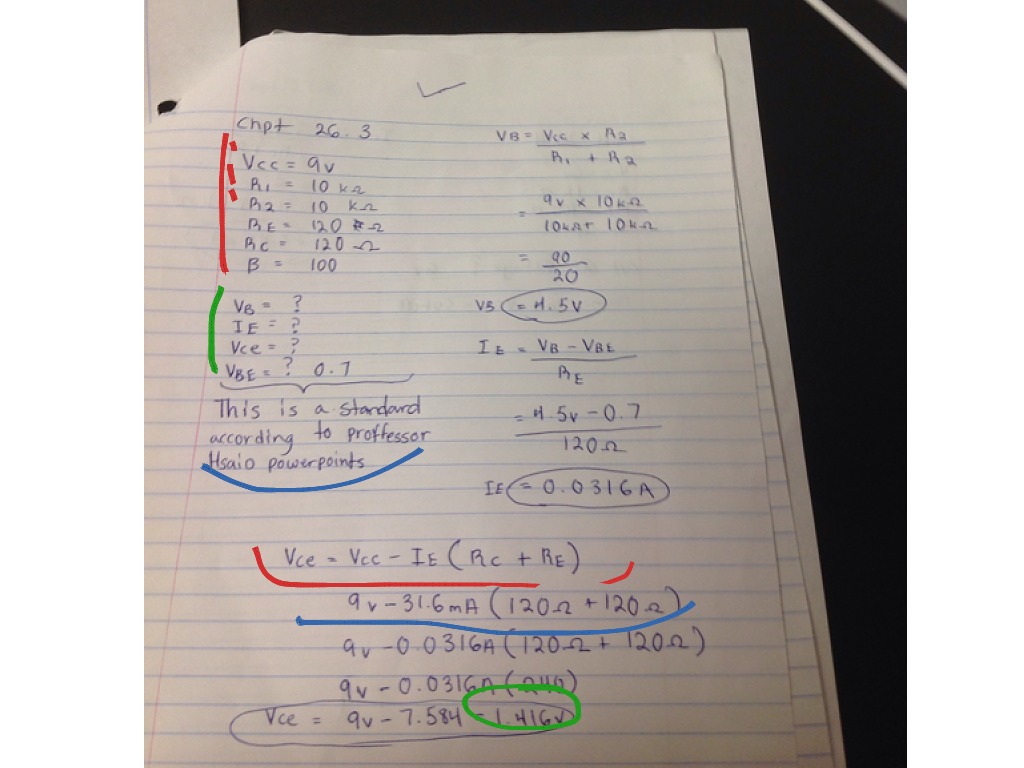 Chpt 26.3
Vcc = 9v
R1 = 10 kΩ
R2 = 10 kΩ
RE = 120 Ω
RC = 120 Ω
B = 100
VB = ?
IE = ?
Vce = ?
VBE = ? 0.7
This is a standard
according to proffessor
Hsaio powerpoints
VB = Vcc x R2
R1 + R2
= 9v x 10kΩ
10kΩ + 10kΩ
= 90
20
VB = 4.5V
IE = VB - VBE
RE
= 4.5v - 0.7
120Ω
IE = 0.0316A
Vce = Vcc - IE (Rc + RE)
9v - 31.6mA (120Ω + 120Ω)
9v - 0.0316A (120Ω + 120Ω)
9v - 0.0316A
Vce = 9v - 7.584 = 1.416v